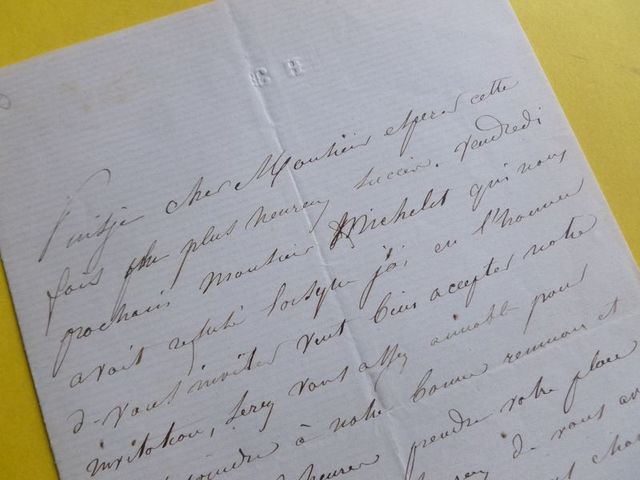 S B
Puisje cher Monsieur esperer cette
fois plus heureux succès. Vendredi
prochain Monsieur Michelet qui nous
avait refusé lorsque j'ai eu l'honneur
d-vous inviter veut bien accepter notre
invitation, serez vous assez aimable pour
joindre à notre bonne reunion et
heures prendre votre place
d- vous av